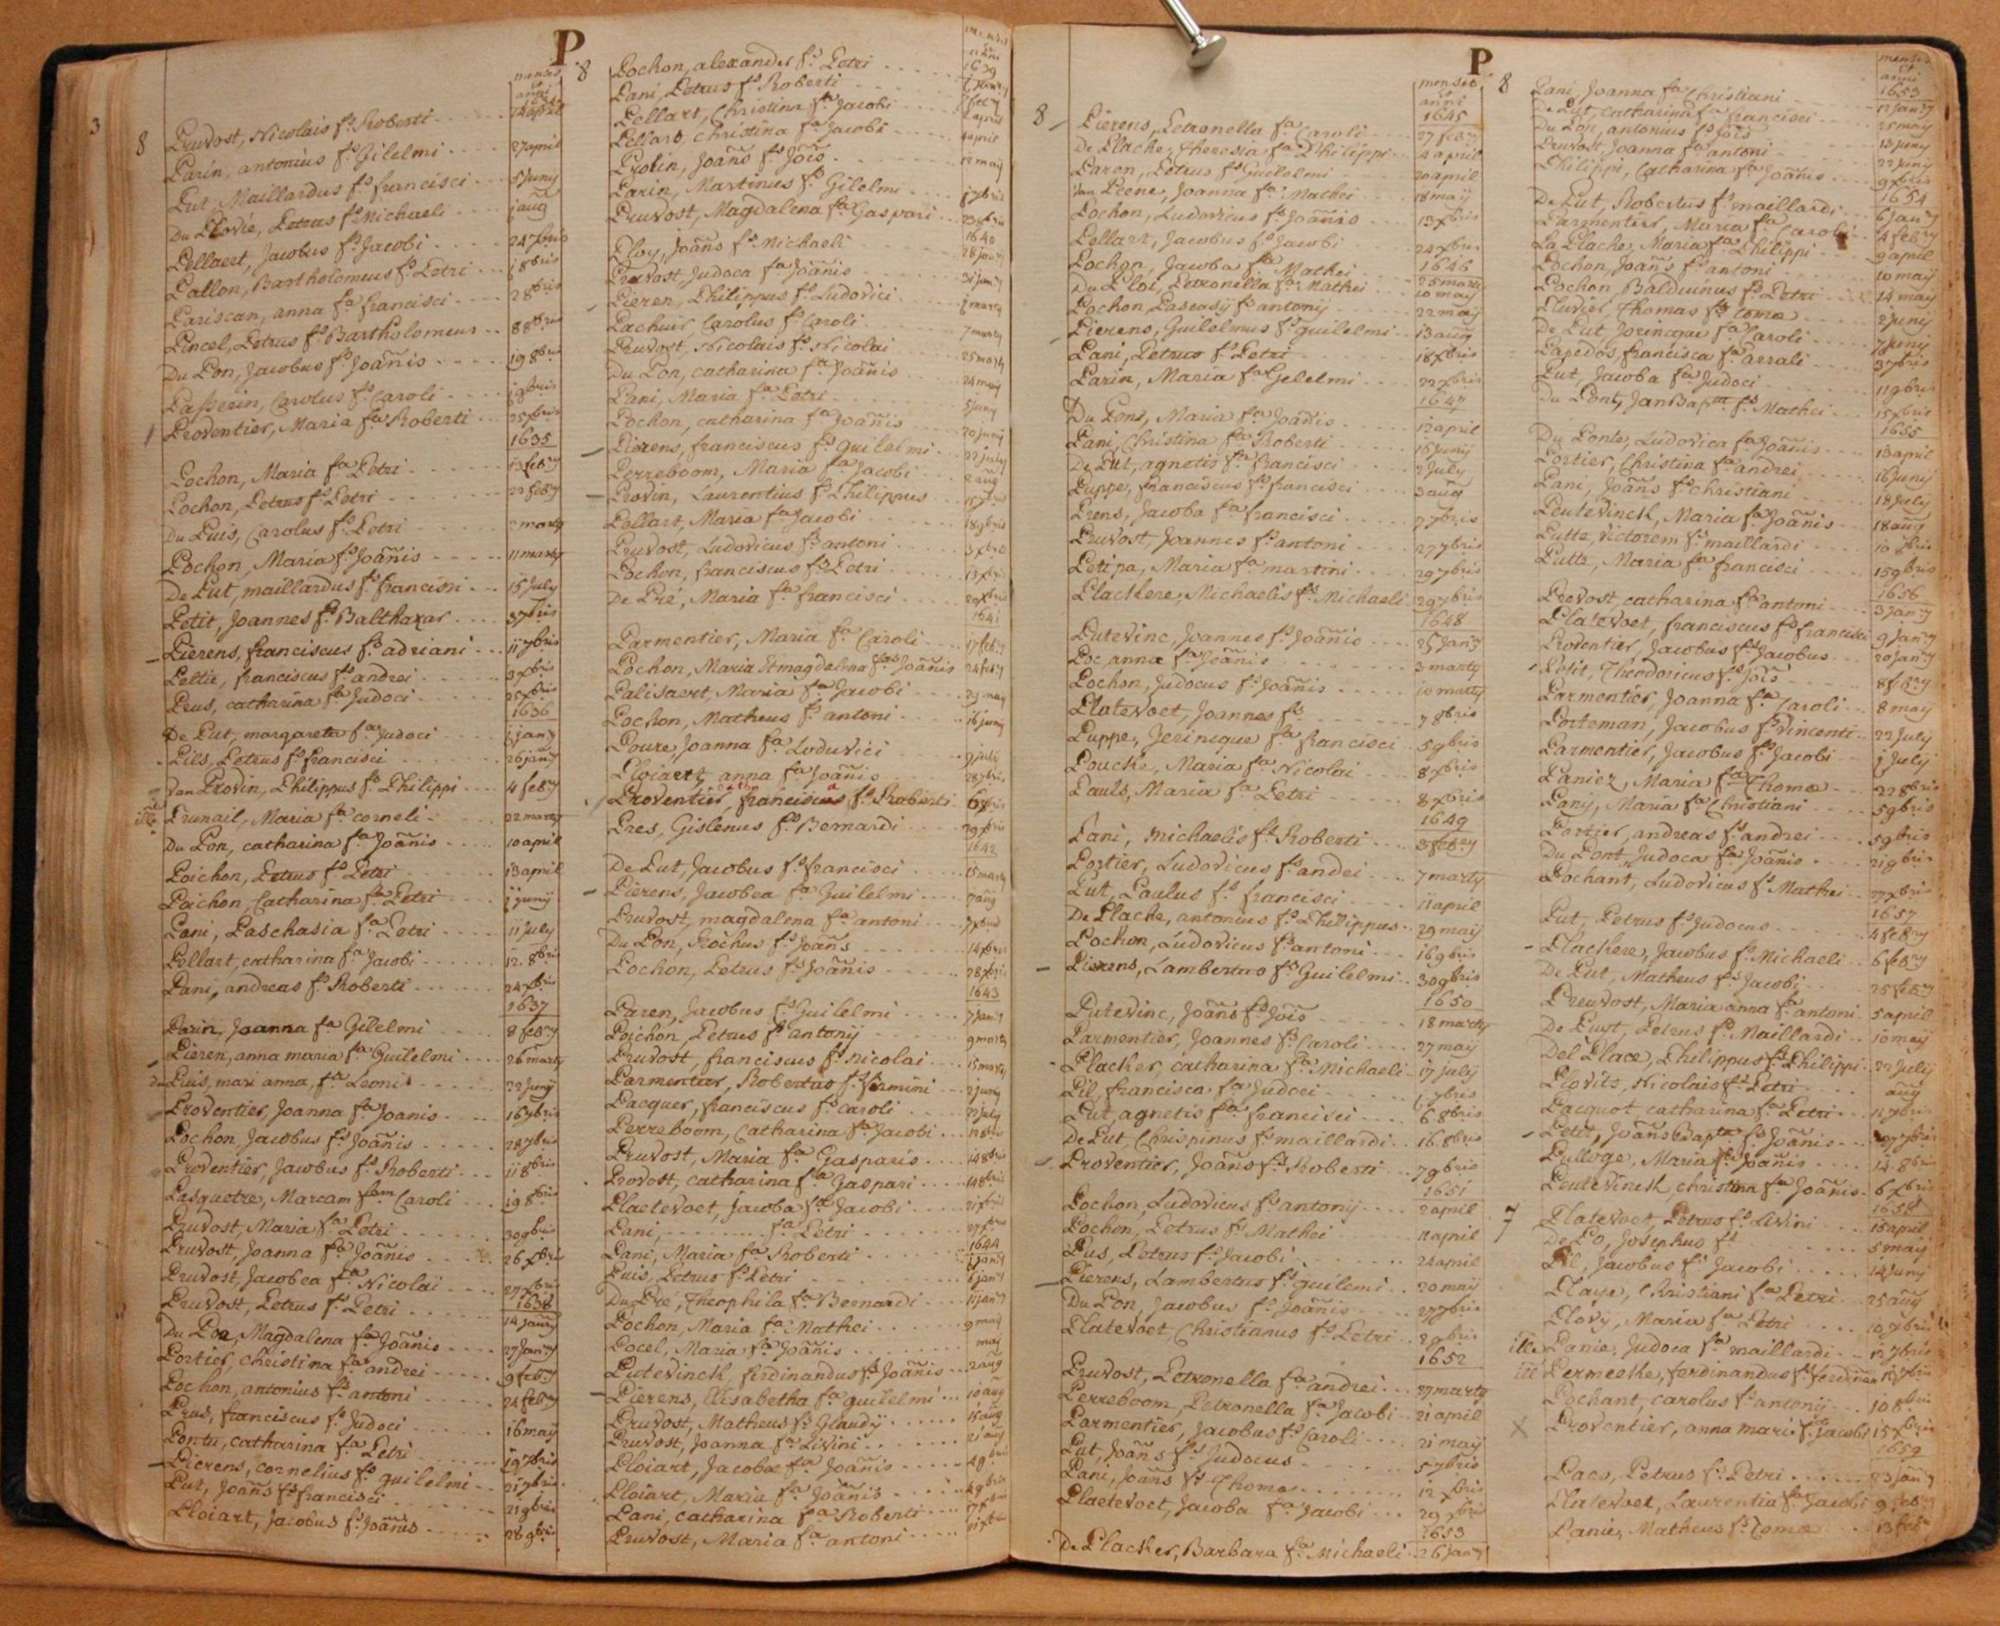 P
menses et anni
3
8
1634
Pruvost, Nicolais fs Roberti
Parin, antonius fs Gilelmi 27 april
Put, Maillardus fs francisci 5 Juny
Du Plovié, Petrus fs Michaeli j aug
Pellaert, Jacobus fs Jacobi 24 7bris
Pallon, Bartholomeus fs Petri j 8bris
Pariscan, anna fa francisci 2 8bris
Pincel, Petrus fs Bartholomeus 8 8bris
Du Pon, Jacobus fs Joãnis 19 8bris
Passerin, Carolus fs Caroli j 9bris
Proventier, Maria fa Roberti 25 xbris
1635
Pochon, Maria fa Petri 13 feb
Pochon, Petrus fs Petri 22 feb
Du Puis, Carolus fs Petri 2 marty
Pochon, Maria fs Joãnis 11 marty
De Put, maillardus fs francisci 15 July
Petit, Joannes fs Balthazar 3 7bris
Pierens, franciscus fs adriani 11 7bris
Peltie, franciscus fs andrei 3 xbris
Peus, catharina fa Judoci 25 xbris
1636
De Put, margareta fa Judoci j jan
Pils, Petrus fs francisci 26 jan
Van Provin, Philippus fs Philippi 4 feb
Prumail, Maria fa corneli 22 marty
Du Pon, catharina fa Joãnis 10 april
Poichon, Petrus fs Petri 13 april
Poichon, Catharina fa Petri j juny
Pani, Paschasia fa Petri 11 july
Pollart, catharina fa Jacobi 12 8bris
Pani, andreas fs Roberti 24 xbris
1637
Parin, Joanna fa Gilelmi 8 feb
Pieren, anna maria fa Guilelmi 26 marty
du Puis, mari anna, fa Leonis 22 Juny
Proventier, Joanna fa Joanis 16 7bris
Pochon, Jacobus fs Joãnis 28 7bris
Proventier, Jacobus fs Roberti 11 8bris
Pesquetre, Mariam fam Caroli 19 8bris
Pruvost, Maria fa Petri 30 9bris
Pruvost, Joanna fa Joãnis 26 xbris
Pruvost, Jacobea fa Nicolai 27 xbris
1638
Pruvost, Petrus fs Petri 14 jan
Du Poe, Magdalena fa Joãnis 27 Jan
Portier, Christina fa andrei 9 feb
Pochon, antonius fs antoni 24 feb
Prus, franciscus fs Judoci 16 may
Pontu, catharina fa Petri 19 7bris
Pierens, cornelius fs guilelmi 21 7bris
Put, Joãns fs francisci 21 9bris
Ploiart, Jacobus fs Joãnis 28 9bris
8
menses et anni
1639
Pochon, alexander fs Petri
Pani, Petrus fs Roberti
Pellart, Christina fa Jacobi
Pellart, Christina fa Jacobi 4 april
Protin, Joãns fs Jõis 12 may
Parin, Martinus fs Gilelmi j 7bris
Pruvost, Magdalena fa Gaspari 23 xbris
1640
Ploy, Joãns fs Michaeli 28 jan
Pruvost, Judoca fa Joãnis 31 jan
Pieren, Philippus fs Ludovici j marty
Pachuir, Carolus fs Caroli 7 marty
Pruvost, Nicolais fs Nicolai 25 marty
Du Pon, catharina fa Joãnis 24 may
Pani, Maria fa Petri 5 juny
Pochon, catharina fa Joãnis 20 juny
Pierens, franciscus fs guilelmi 22 july
Perreboom, Maria fa Jacobi 2 aug
Provin, Laurentius fs Philippus
Pollart, Maria fa Jacobi 18 9bris
Pruvost, Ludovicus fs antoni 3 xbris
Pochon, franciscus fs Petri 13 xbris
De Prié, Maria fa francisci
1641
Parmentier, Maria fa Caroli 17 feb
Pochon, Maria & magdalena fas Joãnis 24 feb
Palisaert, Maria fa Jacobi 23 may
Pochon, Matheus fs antoni 16 juny
Poure, Joanna fa Loduvici 9 july
Ploiart, anna fa Joãnis 28 7bris
Proventier, franciscus fs Roberti
Pres, Gislenus fs Bernardi 29 xbris
1642
De Put, Jacobus fs francisci 15 marty
Pierens, Jacobea fa Guilelmi 7 aug
Pruvost, magdalena fa antoni 7 xbris
Du Pon, Rochus fs Joãns 14 xbris
Pochon, Petrus fs Joãnis 28 xbris
1643
Paren, Jacobus fs Guilelmi 7 jan
Poichon, Petrus fs antony 9 marty
Pruvost, franciscus fs nicolai 15 marty
Parmentier, Robertus fs firmini 2 juny
Pacquer, franciscus fs caroli 22 july
Perreboom, Catharina fa Jacobi
Pruvost, Maria fa Gasparis 14 8bris
Provost, catharina fa Gaspari 14 8bris
Plaetevoet, jacoba fa Jacobi 21 xbris
Pani, fa Petri 27 xbris
1644
Pani, Maria fa Roberti
Puis, Petrus fs Petri 6 jan
Du Pré, Theophila fa Bernardi 11 jan
Pochon, Maria fa Mathei 9 may
Pocel, Maria fa Joãnis may
Putevinck, ferdinandus fs Joãnis 2 aug
Pierens, Elisabetha fa guilelmi 10 aug
Pruvost, Matheus fs Glaudy 15 aug
Pruvost, Joanna fa Livini 21 aug
Ploiart, Jacobæ fa Joãnis
Ploiart, Maria fa Joãnis
Pani, catharina fa Roberti
Pruvost, Maria fa antoni
P
menses et anni
8
1645
Pierens, Petronella fa Caroli 27 feb
De Plache, Theresia fa Philippi 4 april
Paren, Petrus fs Guilelmi 20 april
Van Peene, Joanna fa Mathei 18 may
Pochon, Ludovicus fs Joãnnis 13 xbris
Pellart, Jacobus fs Jacobi 24 xbris
1646
Pochon, Jacoba fa Mathei 26 marty
Du Ploi, Petronella fa Mathei 10 may
Pochon, Pascasy fs antony 22 may
Pierens, Guilelmus fs guilelmi 13 aug
Pani, Petrus fs Petri 18 xbris
Parin, Maria fa Gilelmi 22 xbris
1647
Du Pons, Maria fa Joãnis 12 april
Pani, Christina fa Roberti 16 juny
De Put, agnetis fa francisci 2 July
Puppe, franciscus fs francisci 3 aug
Prens, Jacoba fa francisci 7 7bris
Pruvost, Joannes fs antoni 27 7bris
Petipa, Maria fa martini 29 7bris
Plackere, Michaelis fs Michaeli 29 7bris
1648
Putevinc, Joannes fs Joãnis 25 Jan
Poc anna fa Joãnis 3 marty
Pochon, Judocus fs Joãnis 10 marty
Platevoet, Joannes fs 7 8bris
Puppe, Jerincque fa francisci 5 9bris
Poucke, Maria fa Nicolai 8 xbris
Pauls, Maria fa Petri 8 xbris
1649
Pani, Michaelis fs Roberti 3 feb
Portier, Ludovicus fs andei 7 marty
Put, Paulus fs francisci 11 april
De Plache, antonius fs Philippus 29 may
Pochon, Ludovicus fs antoni 16 9bris
Pierens, Lambertus fs Guilelmi 30 9bris
1650
Putevinc, Joãns fs Joĩs 18 marty
Parmentier, Joannes fs Caroli 27 may
Placker, catharina fa Michaeli 17 july
Pil, francisca fa Judoci
Put, agnetis fa francisci 6 8bris
De Put Chrispinus fs maillardi 16 8bris
Proventier, Joãns fs Roberti 7 9bris
1651
Pochon, Ludovicus fs antony 2 april
Pochon, Petrus fs Mathei 11 april
Pus, Petrus fs Jacobi 24 april
Pierens, Lambertus fs guilemi 20 may
Du Pon, Jacobus fs Joãnis 27 7bris
Platevoet, Christianus fs Petri 2 9bris
1652
Pruvost, Petronella fa andrei 27 marty
Perreboom, Petronella fa Jacobi 21 april
Parmentier, Jacobus fs Caroli 21 may
Put, Joãns fs Judocus 5 7bris
Pani, Joãns fs Thomas 12 xbris
Plaetevoet, Jacoba fa Jacobi 29 xbris
1653
De Placker, Barbara fa Michaeli 26 jan
8
menses et anni
1653
Pani, Joanna fa Christiani 12 jan
De Put, catharina fa francisci 25 may
Du Pon, antonius fs Jõis 15 juny
Pruvost, Joanna fa antoni 22 juny
Philippi, Catharina fa Joãnis 9 xbris
1654
De Put, Robertus fs maillardi 6 jan
Parmentier, Maria fa Caroli 4 feb
La Plache, Maria fa Philippi 9 april
Pochon, Joãns fs antoni 10 may
Pochon, Balduinus fs Petri 14 may
Pluvier, Thomas fs Tomæ 2 juny
De Put Jorincque fa Caroli 7 juny
Papedos, francisca fa 3 7bris
Put, Jacoba fa Judoci 11 9bris
Du Pont, Jan Bapte fs Mathei 15 xbris
1655
Du Ponte, Ludovica fa Joãnis 13 april
Portier, Christina fa andrei 16 juny
Pani, Joãns fs christiani 18 July
Peutevinck, Maria fa Joãnis 18 aug
Putte, victorem fs maillardi 10 7bris
Putte, Maria fa francisci 15 9bris
1656
Prevost, catharina fa antoni 3 jan
Platevoet, franciscus fs francisci 9 jan
Proventier, Jacobus fs Jacobus 20 jan
Petit, Theodoricus fs Jõis 8 feb
Parmentier, Joanna fa Caroli 8 may
Porteman, Jacobus fs Vincenti 22 July
Parmentier, Jacobus fs Jacobi j July
Paniez, Maria fa Thomæ 22 8bris
Pany, Maria fa Christiani 5 9bris
Portier, andreas fs andrei 5 9bris
Du Pont, Judoca fa Joãnis 21 9bris
Pochant, Ludovicus fs Mathei 27 xbris
1657
Put, Petrus fs Judocus 4 feb
Plackere, Jacobus fs Michaeli 6 feb
De Put, Matheus fs Jacobi 25 feb
Preuvost, Maria anna fa antoni 5 april
De Puyt, Petrus fs Maillardi 10 may
Del Place, Philippus fs Philippi 22 July
Plovits, Nicolais fs Petri aug
Pacquot, catharina fa Petri 11 7bris
Petit, Joãns Bapte fs Joãnis 27 7bris
Pulloge, Maria fa Joãnis 14 8bris
Peutevinck christina fa Joãnis 6 xbris
1658
7
Platevoet, Petrus fs Livini 15 april
De Po, Josephus fs 5 may
Pil, Jacobus fs Jacobi 14 Juny
Playe, Christiani fa Petri 25 aug
Plovy, Maria fa Petri 10 7bris
Panie, Judoca fa maillardi 12 7bris
Permeeke, ferdinandus fs
Pochant, carolus fs antony 10 8bris
X Proventier, anna mari fa Jacobi 15 xbris
1659
Paes, Petrus fs Petri 23 jan
Platevoet, Laurentia fa Jacobi 9 feb
Panie, Matheus fs Tomæ 13 feb